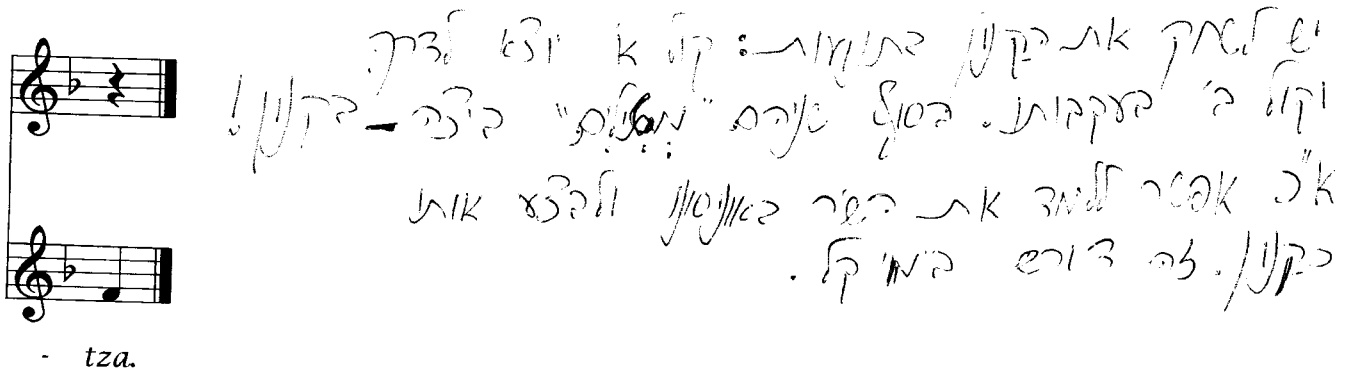 יש לשחק את הקנון בתנועות: קול א' יוצא לדרך
וקול ב' בעקבותיו. בסוף שניהם "מטילים" ביצה - בקנון!
אח"כ אפשר ללמד את השיר באוניסונו ולבצע אותו
כקנון. זה דורש בימוי קל.
- tza.